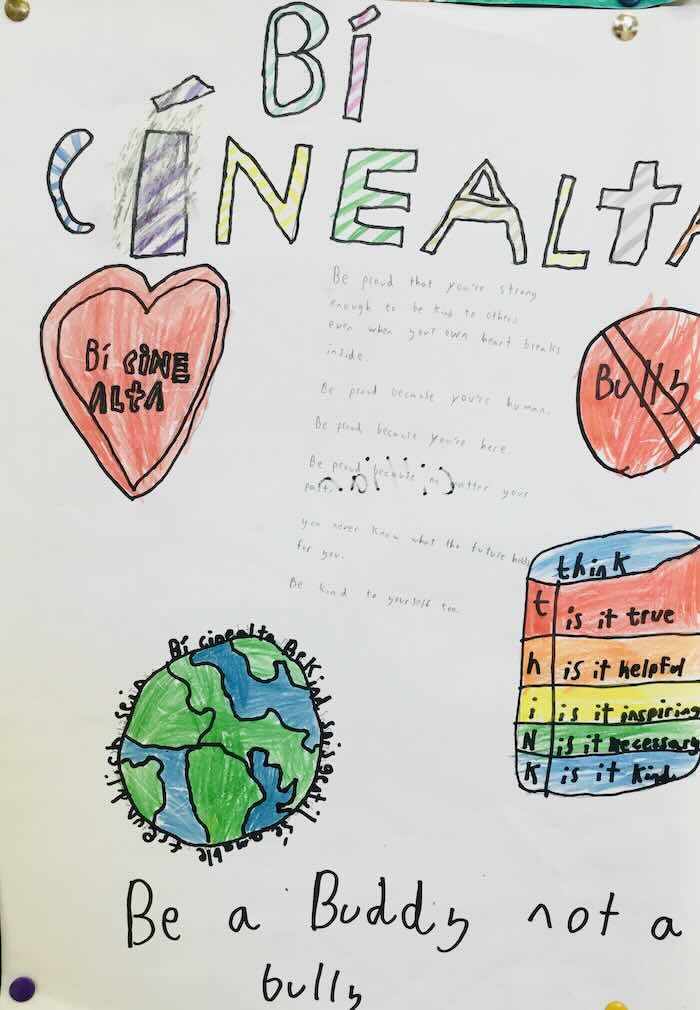 Bí
CÍNEALTA
Bí CINE
ALTA
Be proud that you're strong
enough to be kind to others
even when your own heart breaks
inside.
Be proud because you're human.
Be proud because you're here.
Be proud because no matter your
past.
Cillian
you never know what the future holds
for you.
Be kind to yourself too.
Bully
think
t is it true
h is it helpful
i is it inspiring
N is it necessary
K is it kind
Bí cinealta Be Kind sois gentil
sé amable
freundlich sein
Be a Buddy not a
bully